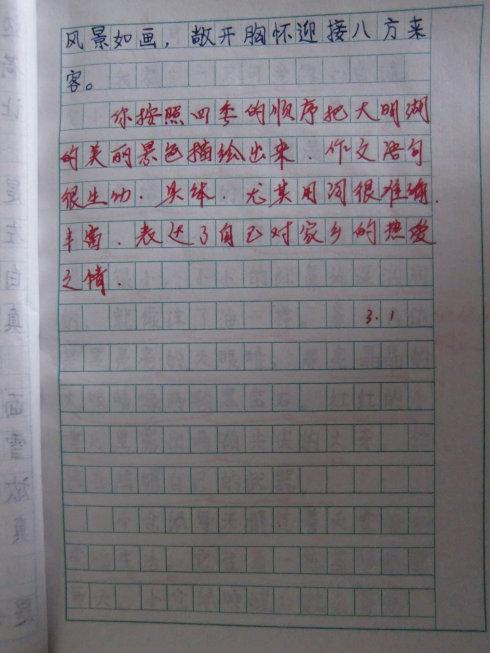 风景如画，敞开胸怀迎接八方来
客。
你按照四季的顺序把大明湖
的美丽景色描绘出来．作文语句
很生动．具体．尤其用词很准确．
丰富．表达了自己对家乡的热爱
之情．
3.1